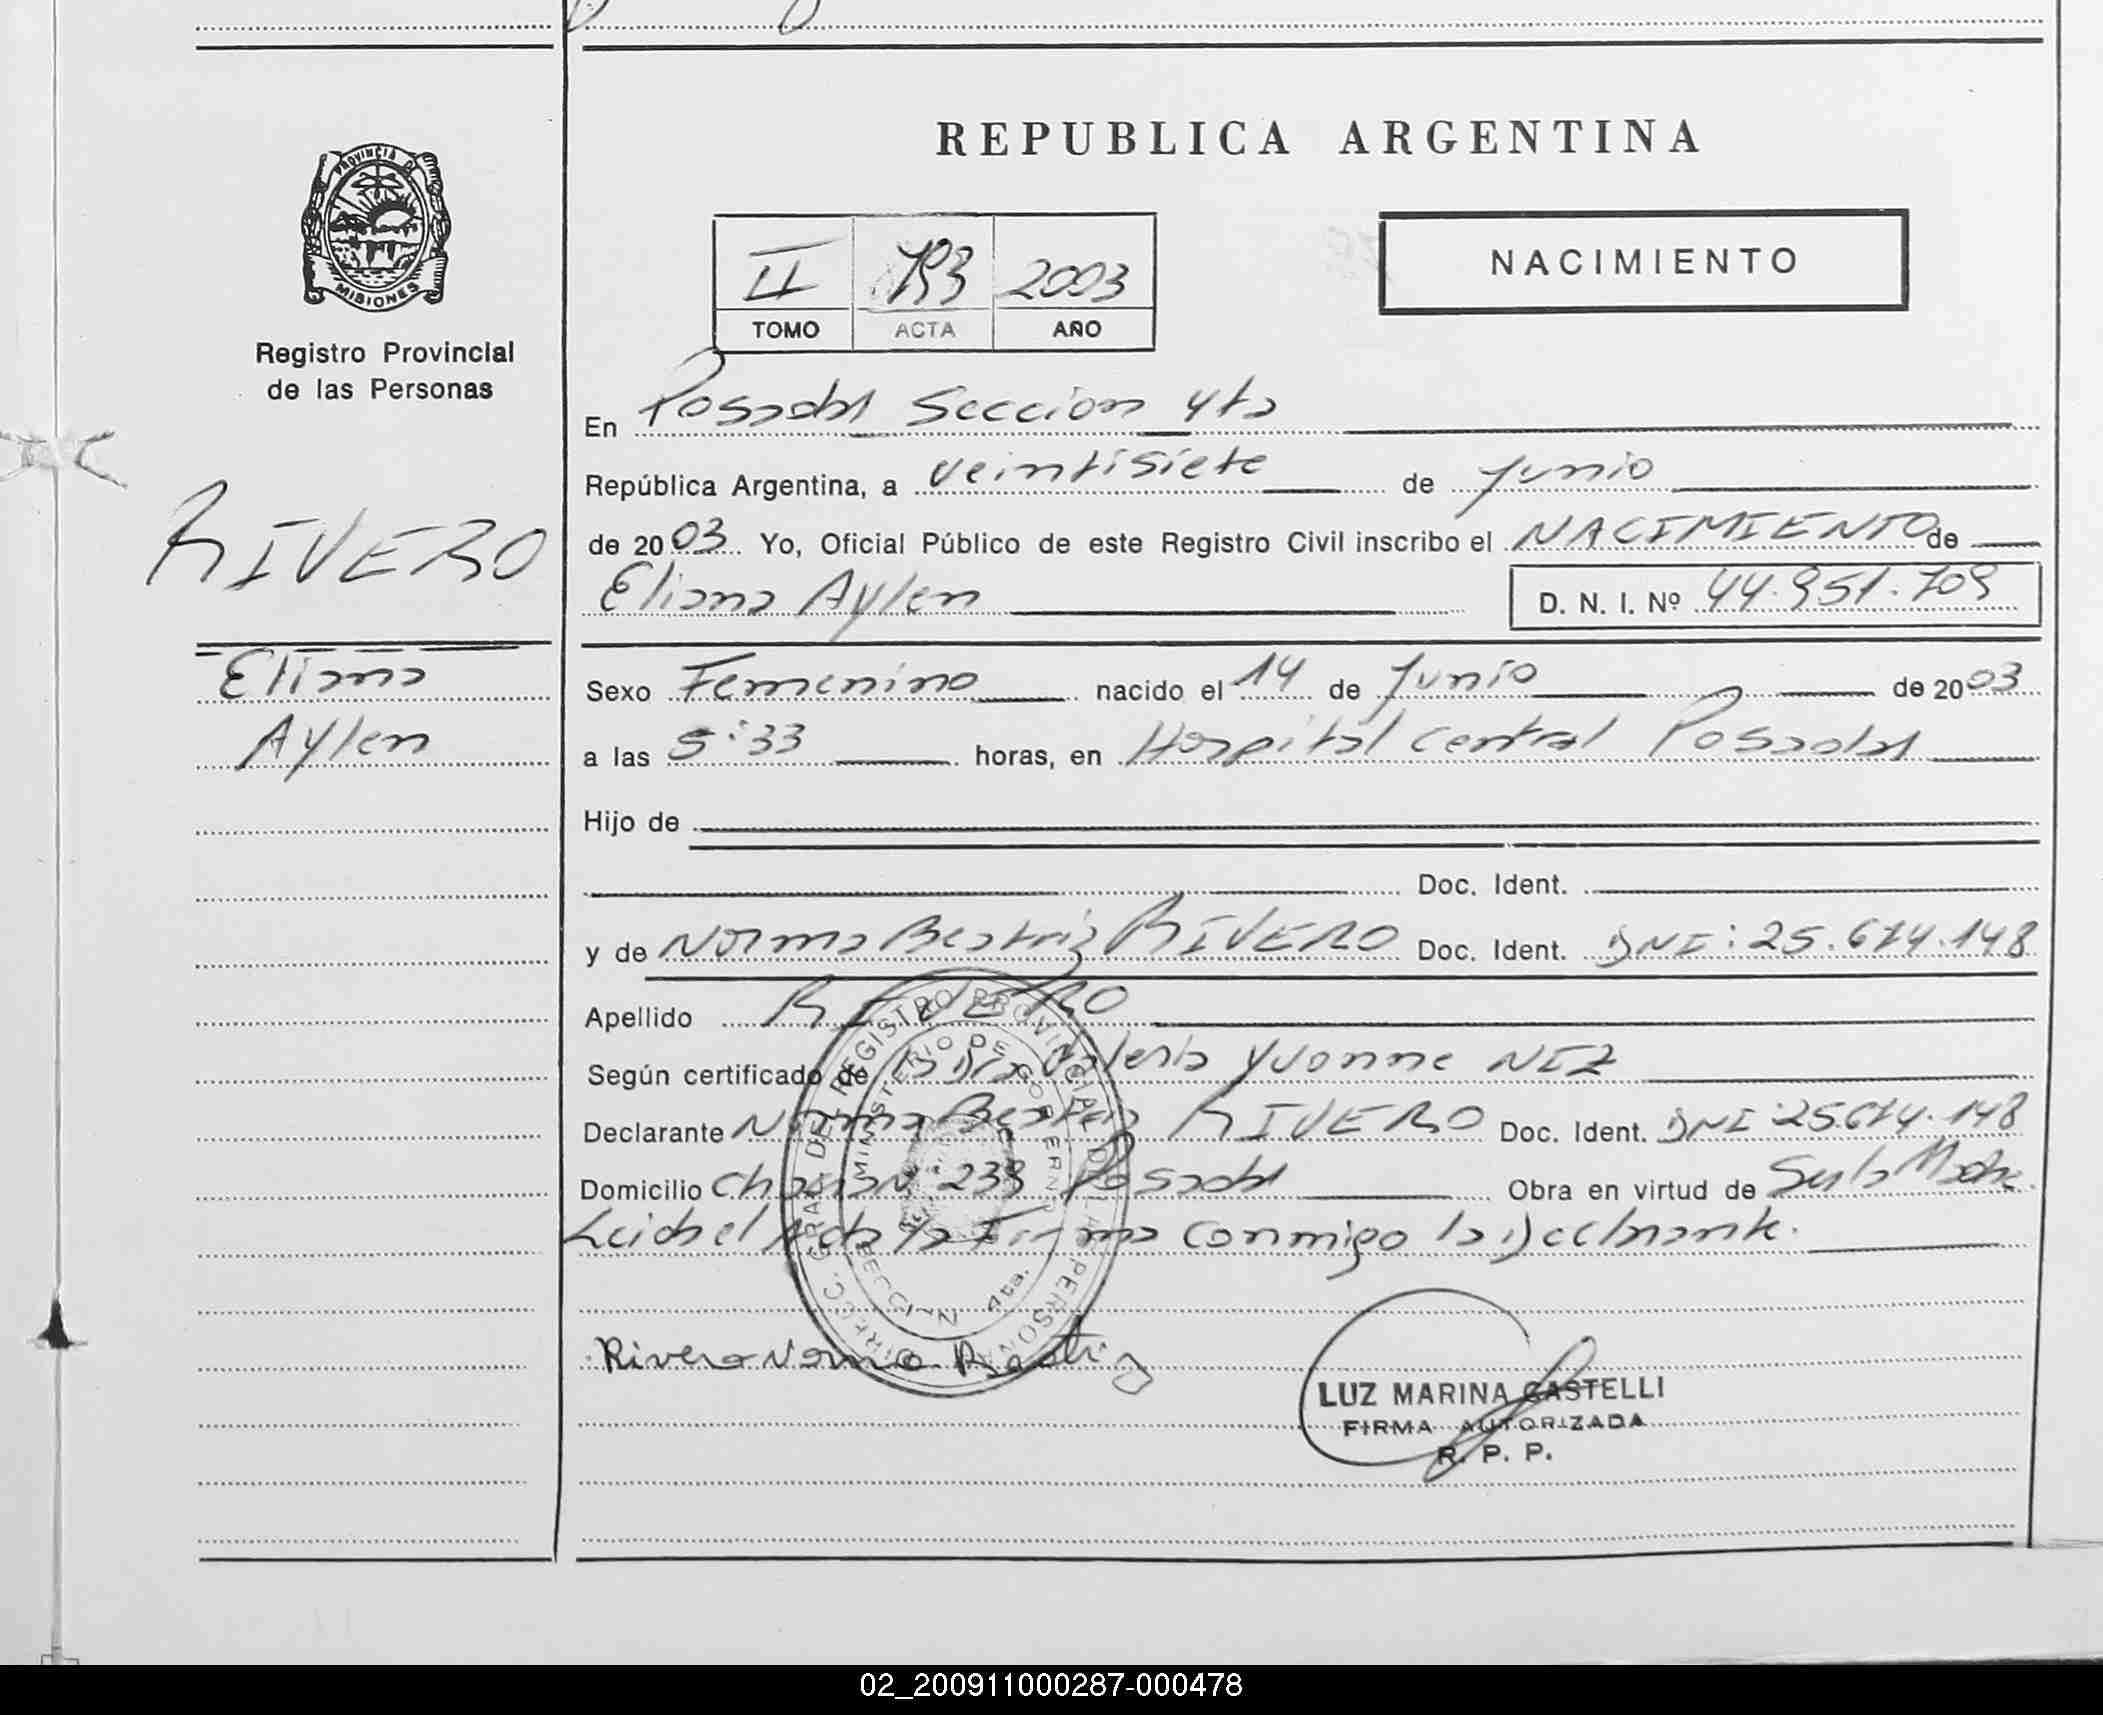 REPUBLICA ARGENTINA
PROVINCIA DE
MISIONES
Registro Provincial
de las Personas
NACIMIENTO
II 2003
TOMO ACTA AÑO
En Posadas Seccion 4ta
República Argentina, a veintisiete de Junio
de 2003 Yo, Oficial Público de este Registro Civil inscribo el NACIMIENTO de
Eliana Aylen D. N. I. Nº 44.951.709
RIVERO
Eliana
Aylen
Sexo Femenino nacido el 14 de Junio de 2003
a las 5:33 horas, en Hospital Central Posadas
Hijo de
Doc. Ident.
y de Norma Beatriz RIVERO Doc. Ident. DNI: 25.674.148
Apellido RIVERO
Según certificado de la Dra Valeria Yvonne NIZ
Declarante Norma Beatriz RIVERO Doc. Ident. DNI: 25.674.148
Domicilio Posadas Obra en virtud de Ser la Madre
Leida el Acta la Firma conmigo la Declarante.
DIRECC. GRAL. DEL REGISTRO PROVINCIAL DE LAS PERSONAS
MINISTERIO DE GOBIERNO
SECCION 4ta.
Rivero Norma Beatriz
LUZ MARINA CASTELLI
FIRMA AUTORIZADA
R. P. P.
02_200911000287-000478